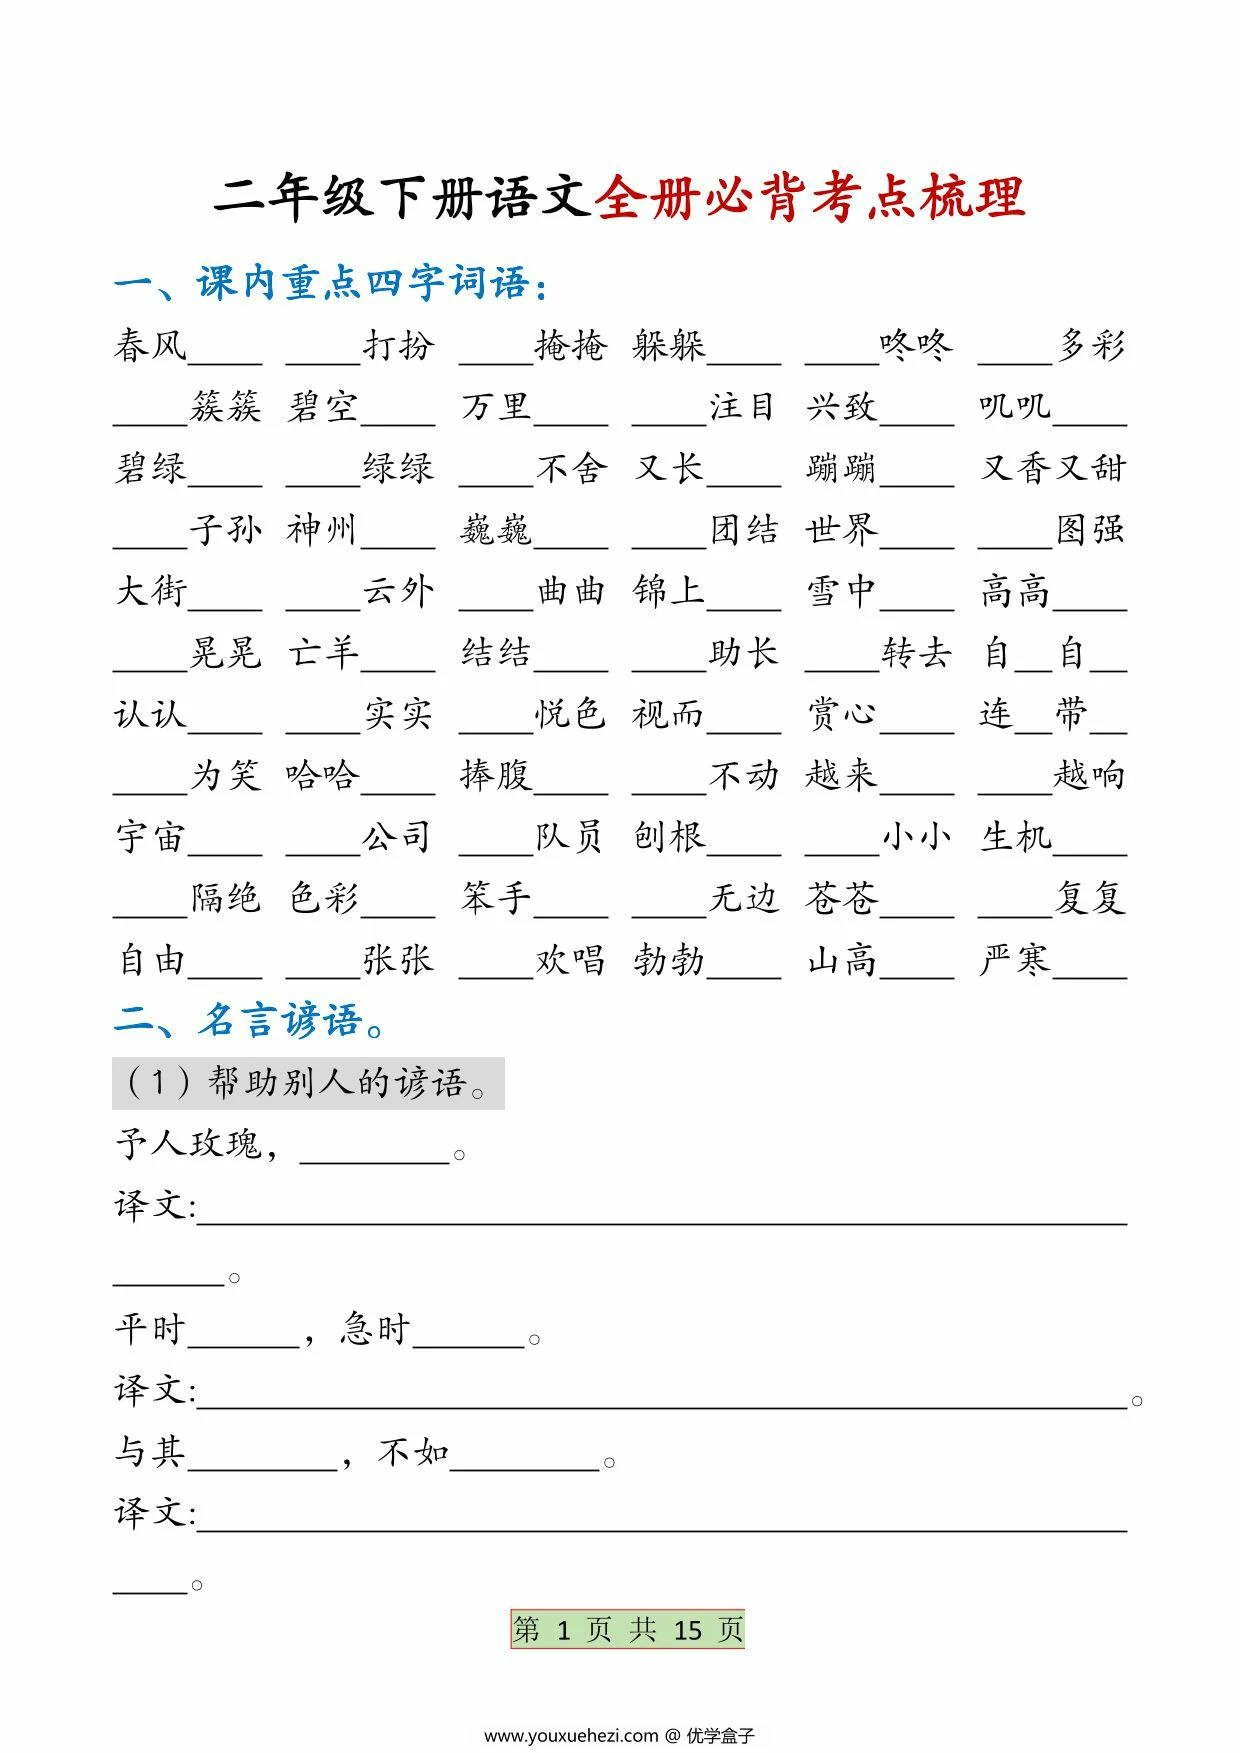 二年级下册语文全册必背考点梳理
一、课内重点四字词语：
春风____ ____打扮 ____掩掩 躲躲____ ____咚咚 ____多彩
____簇簇 碧空____ 万里____ ____注目 兴致____ 叽叽____
碧绿____ ____绿绿 ____不舍 又长____ 蹦蹦____ 又香又甜
____子孙 神州____ 巍巍____ ____团结 世界____ ____图强
大街____ ____云外 ____曲曲 锦上____ 雪中____ 高高____
____晃晃 亡羊____ 结结____ ____助长 ____转去 自__自__
认认____ ____实实 ____悦色 视而____ 赏心____ 连__带__
____为笑 哈哈____ 捧腹____ ____不动 越来____ ____越响
宇宙____ ____公司 ____队员 刨根____ ____小小 生机____
____隔绝 色彩____ 笨手____ ____无边 苍苍____ ____复复
自由____ ____张张 ____欢唱 勃勃____ 山高____ 严寒____
二、名言谚语。
（1）帮助别人的谚语。
予人玫瑰，________。
译文:__________________________________________________
______。
平时______，急时______。
译文:__________________________________________________。
与其________，不如________。
译文:__________________________________________________
____。
第 1 页 共 15 页
www.youxuehezi.com @ 优学盒子